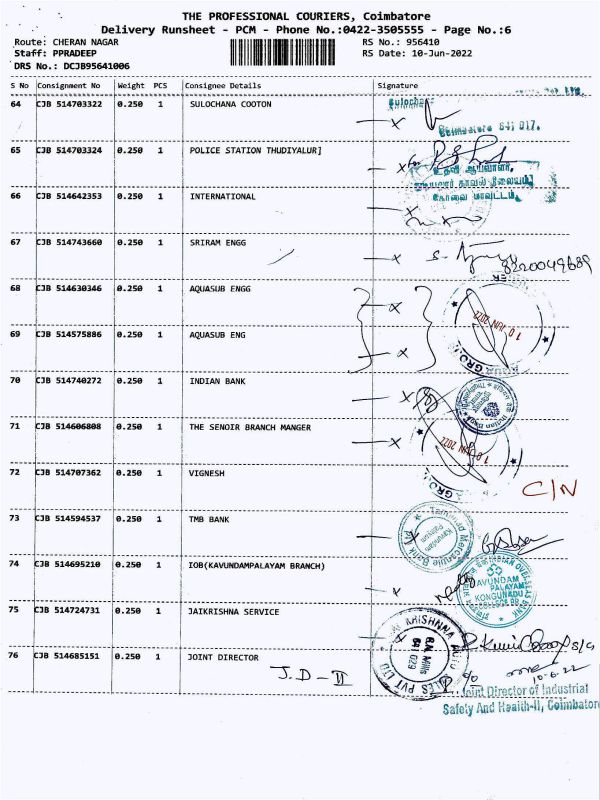 THE PROFESSIONAL COURIERS, Coimbatore
Delivery Runsheet - PCM - Phone No.:0422-3505555 - Page No.:6
Route: CHERAN NAGAR RS No.: 956410
Staff: PPRADEEP RS Date: 10-Jun-2022
DRS No.: DCJB95641006
S No Consignment No Weight PCS Consignee Details Signature
64 CJB 514703322 0.250 1 SULOCHANA COOTON
Coimbatore 641 017.
65 CJB 514703324 0.250 1 POLICE STATION THUDIYALUR]
உதவி ஆய்வாளர்,
காவல் நிலையம்
கோவை மாவட்டம்.
66 CJB 514642353 0.250 1 INTERNATIONAL
67 CJB 514743660 0.250 1 SRIRAM ENGG
68 CJB 514630346 0.250 1 AQUASUB ENGG
10 JUN 2022
69 CJB 514575886 0.250 1 AQUASUB ENG
70 CJB 514740272 0.250 1 INDIAN BANK
71 CJB 514606808 0.250 1 THE SENOIR BRANCH MANGER
10 JUN 2022
72 CJB 514707362 0.250 1 VIGNESH
C/N
73 CJB 514594537 0.250 1 TMB BANK
Tamilnad Mercantile Bank
74 CJB 514695210 0.250 1 IOB(KAVUNDAMPALAYAM BRANCH)
KAVUNDAM
PALAYAM
KONGUNADU
75 CJB 514724731 0.250 1 JAIKRISHNA SERVICE
KRISHNNA AUTO SALES PVT LTD
S.R.N Mills
641 029
76 CJB 514685151 0.250 1 JOINT DIRECTOR
J.D-II
10-6-22
Joint Director of Industrial
Safety And Health-II, Coimbatore